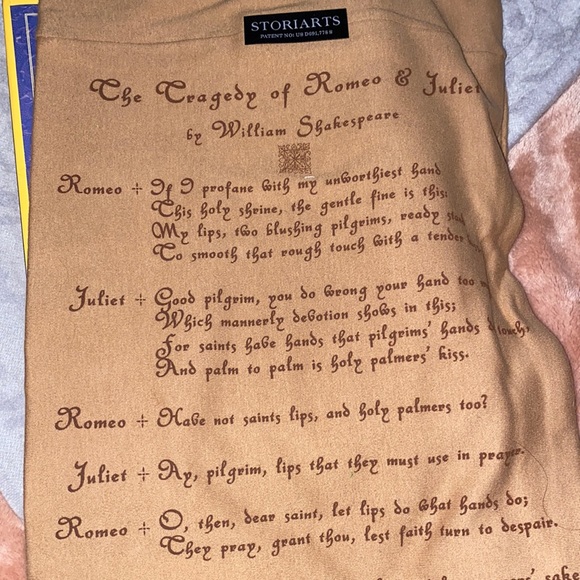 STORIARTS
PATENT NO: US D691,776 S
The Tragedy of Romeo & Juliet
by William Shakespeare
Romeo + If I profane with my unworthiest hand
This holy shrine, the gentle fine is this:
My lips, two blushing pilgrims, ready
To smooth that rough touch with a tender
Juliet + Good pilgrim, you do wrong your hand too
Which mannerly devotion shows in this;
For saints have hands that pilgrims' hands touch,
And palm to palm is holy palmers' kiss.
Romeo + Have not saints lips, and holy palmers too?
Juliet + Ay, pilgrim, lips that they must use in prayer.
Romeo + O, then, dear saint, let lips do what hands do;
They pray, grant thou, lest faith turn to despair.
sake